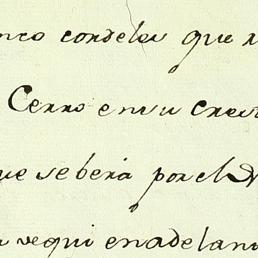 nco cordeles que
Cerro en su cres
ue se berá por el
se qui en adelan